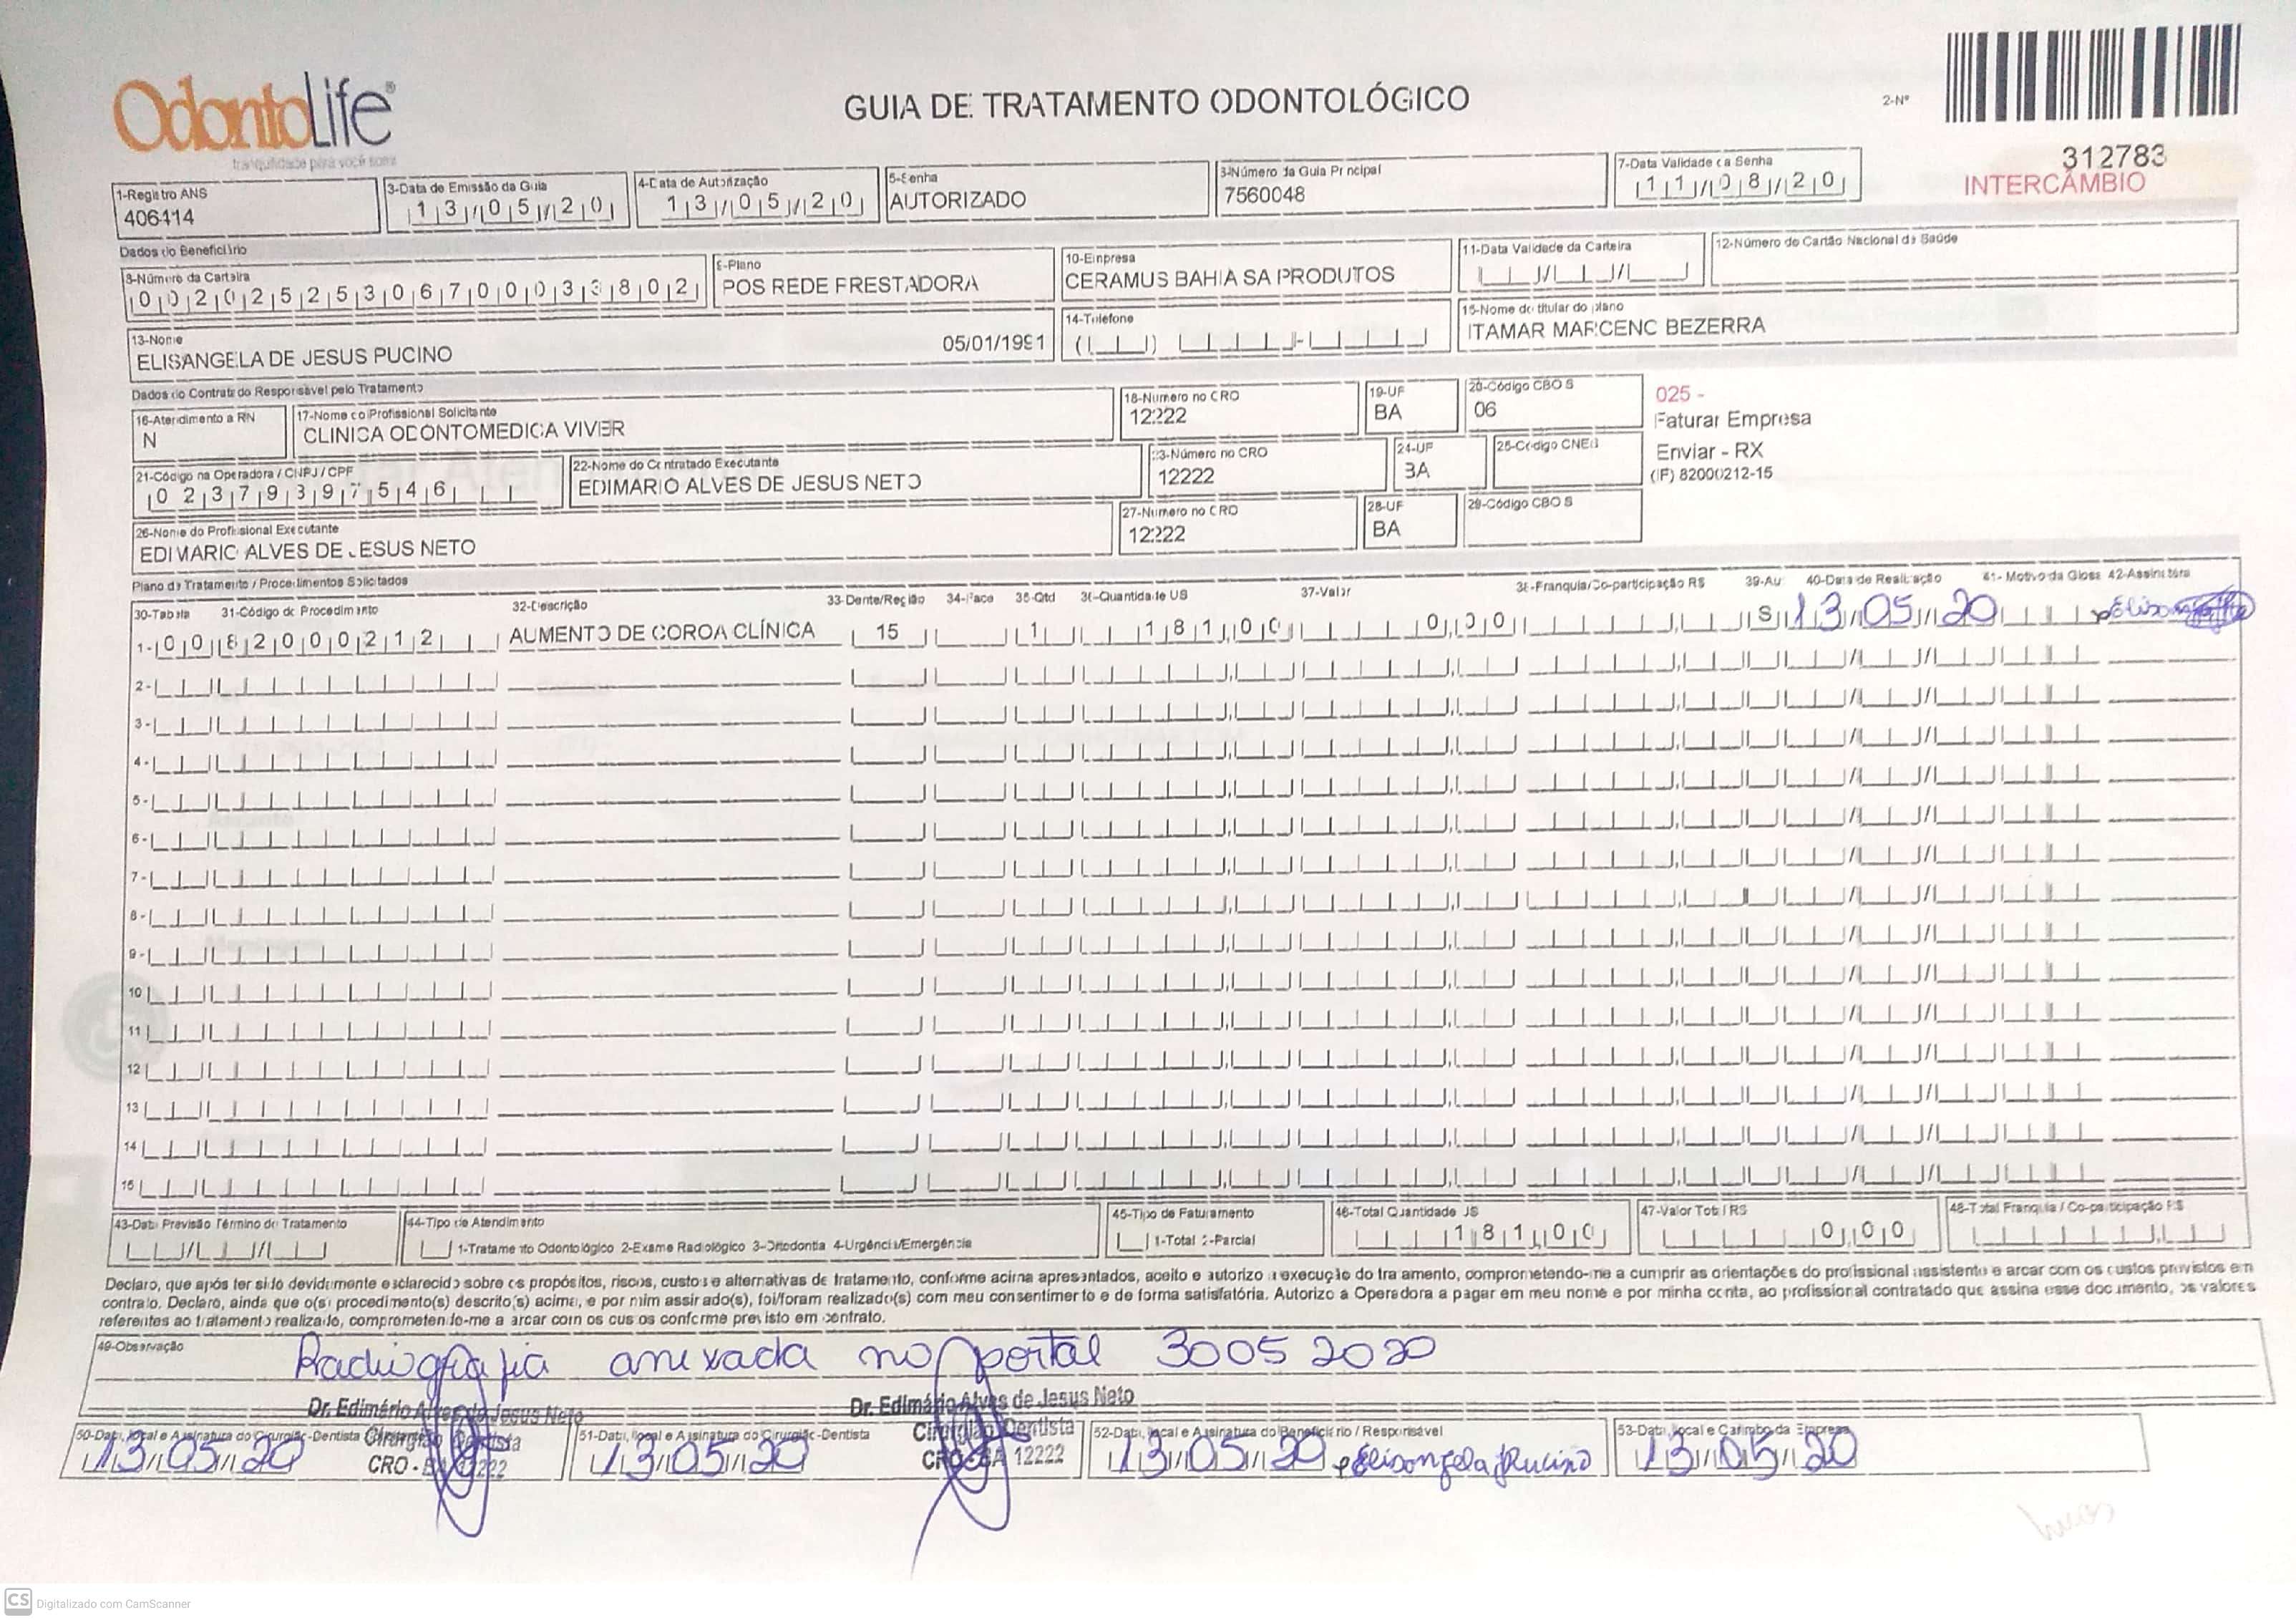 OdontoLife®
tranquilidade para você sorrir
GUIA DE TRATAMENTO ODONTOLÓGICO
2-Nº
312783
INTERCÂMBIO
1-Registro ANS
406414
3-Data de Emissão da Guia
13/05/20
4-Data de Autorização
13/05/20
5-Senha
AUTORIZADO
3-Número da Guia Principal
7560048
7-Data Validade da Senha
11/08/20
Dados do Beneficiário
8-Número da Carteira
00202525306700033802
9-Plano
POS REDE PRESTADORA
10-Empresa
CERAMUS BAHIA SA PRODUTOS
11-Data Validade da Carteira
12-Número do Cartão Nacional de Saúde
13-Nome
ELISANGELA DE JESUS PUCINO 05/01/1991
14-Telefone
15-Nome do titular do plano
ITAMAR MARCENO BEZERRA
Dados do Contratado Responsável pelo Tratamento
16-Atendimento a RN
N
17-Nome do Profissional Solicitante
CLINICA ODONTOMEDICA VIVER
18-Número no CRO
12222
19-UF
BA
20-Código CBO S
06
025 -
Faturar Empresa
Enviar - RX
(IF) 82000212-15
21-Código na Operadora / CNPJ / CPF
02379397546
22-Nome do Contratado Executante
EDIMARIO ALVES DE JESUS NETO
23-Número no CRO
12222
24-UF
BA
25-Código CNES
26-Nome do Profissional Executante
EDIMARIO ALVES DE JESUS NETO
27-Número no CRO
12222
28-UF
BA
29-Código CBO S
Plano de Tratamento / Procedimentos Solicitados
30-Tabela 31-Código do Procedimento 32-Descrição 33-Dente/Região 34-Face 35-Qtd 36-Quantidade US 37-Valor 38-Franquia/Co-participação RS 39-Au 40-Data de Realização 41- Motivo da Glosa 42-Assinatura
1- 00 82000212 AUMENTO DE COROA CLÍNICA 15 1 181,00 0,00 S 13/05/20
2-
3-
4-
5-
6-
7-
8-
9-
10
11
12
13
14
15
43-Data Previsão Término do Tratamento
44-Tipo de Atendimento
1-Tratamento Odontológico 2-Exame Radiológico 3-Ortodontia 4-Urgência/Emergência
45-Tipo de Faturamento
1-Total 2-Parcial
46-Total Quantidade US
181,00
47-Valor Total RS
0,00
48-Total Franquia / Co-participação RS
Declaro, que após ter sido devidamente esclarecido sobre os propósitos, riscos, custos e alternativas de tratamento, conforme acima apresentados, aceito e autorizo a execução do tratamento, comprometendo-me a cumprir as orientações do profissional assistente e arcar com os custos previstos em
contrato. Declaro, ainda que o(s) procedimento(s) descrito(s) acima, e por mim assinado(s), foi/foram realizado(s) com meu consentimento e de forma satisfatória. Autorizo a Operadora a pagar em meu nome e por minha conta, ao profissional contratado que assina esse documento, os valores
referentes ao tratamento realizado, comprometendo-me a arcar com os custos conforme previsto em contrato.
49-Observação
Radiografia anexada no portal 30 05 2020
Dr. Edimário Alves de Jesus Neto
Cirurgião Dentista
CRO - BA 12222
Dr. Edimário Alves de Jesus Neto
Cirurgião Dentista
CRO - BA 12222
50-Data, local e Assinatura do Cirurgião-Dentista
13/05/20
51-Data, local e Assinatura do Cirurgião-Dentista
13/05/20
52-Data, local e Assinatura do Beneficiário / Responsável
13/05/20 Elisangela J Pucino
53-Data, local e Carimbo da Empresa
13/05/20
CS Digitalizado com CamScanner